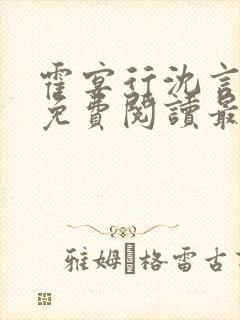 霍宴行沈言
免費閱讀最
雅姆·格雷古